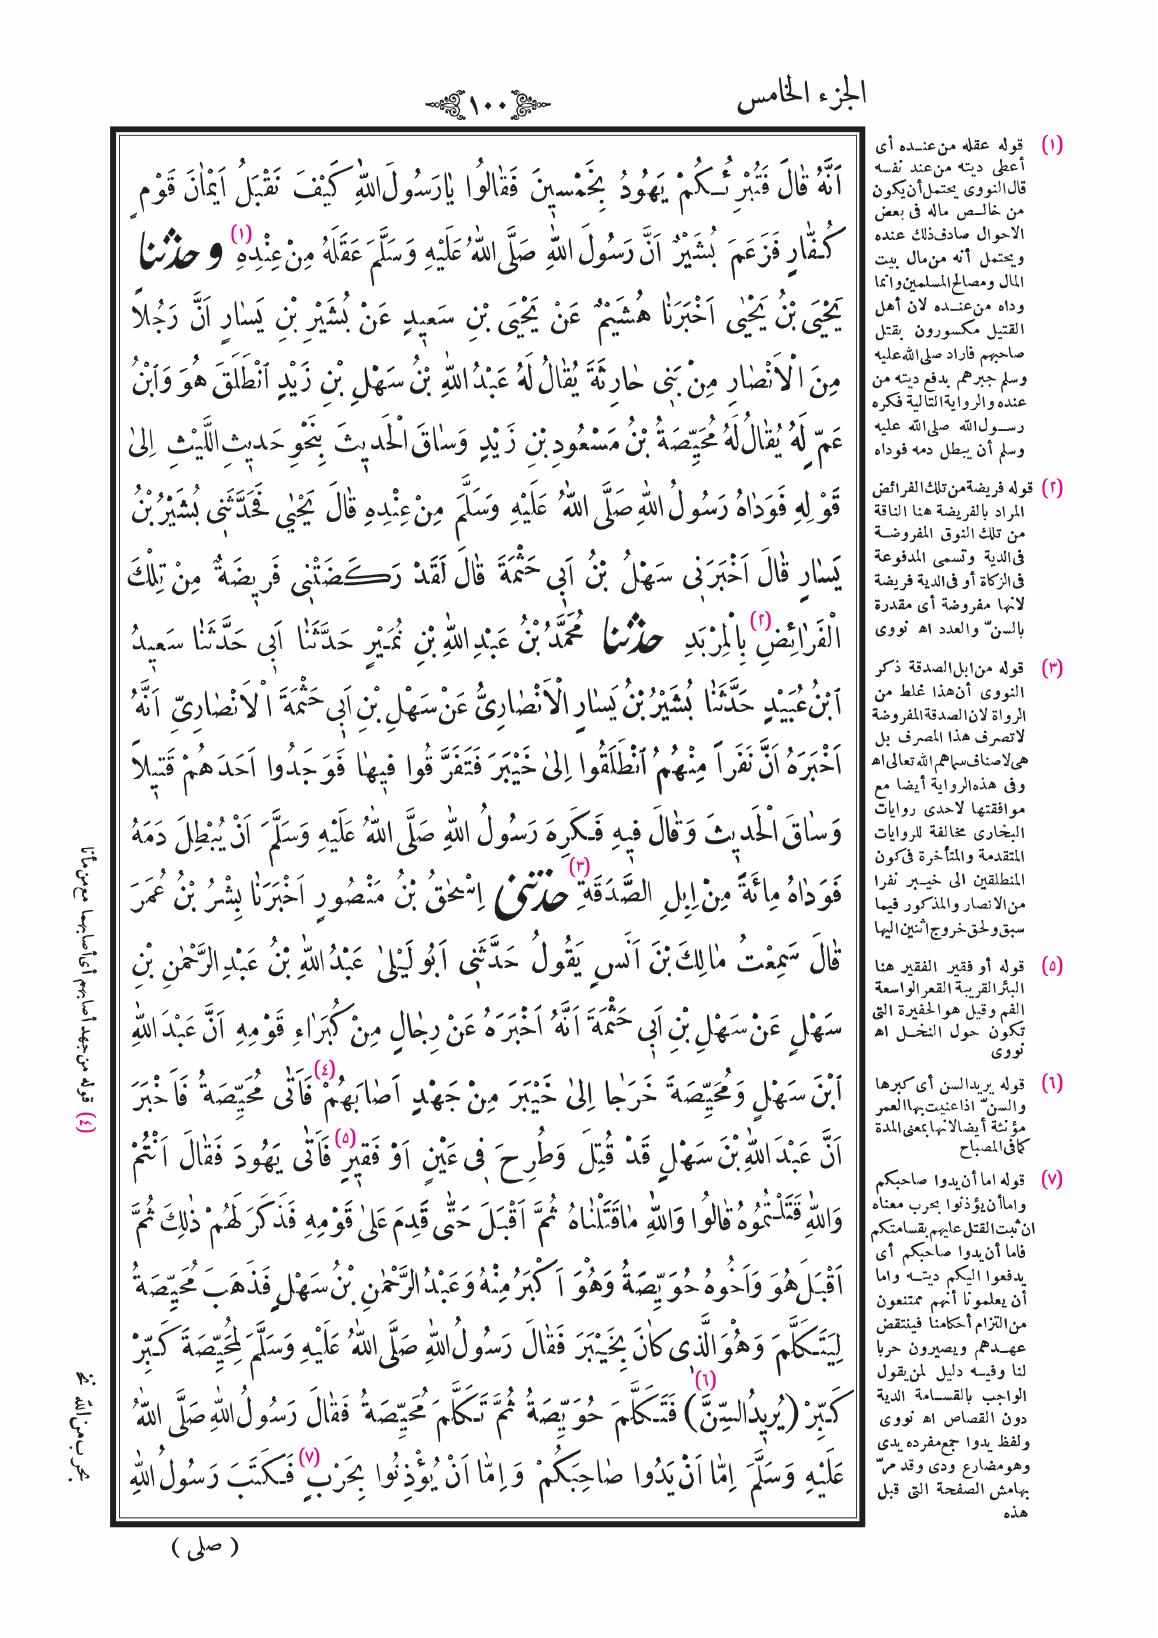 الجزء الخامس
١٠٠
اَنَّهُ قَالَ فَتُبْرِئُكُمْ يَهُودُ بِخَمْسينَ فَقَالُوا يَارَسُولَ اللهِ كَيْفَ نَقْبَلُ اَيْمَانَ قَوْمٍ
كُفَّارٍ فَزَعَمَ بُشَيْرٌ اَنَّ رَسُولَ اللهِ صَلَّى اللهُ عَلَيْهِ وَسَلَّمَ عَقَلَهُ مِنْ عِنْدِهِ (١) وحدثنا
يَحْيَى بْنُ يَحْيٰى اَخْبَرَنَا هُشَيْمٌ عَنْ يَحْيَى بْنِ سَعيدٍ عَنْ بُشَيْرِ بْنِ يَسَارٍ اَنَّ رَجُلاً
مِنَ الْاَنْصَارِ مِنْ بَنى حَارِثَةَ يُقَالُ لَهُ عَبْدُ اللهِ بْنُ سَهْلِ بْنِ زَيْدٍ اَنْطَلَقَ هُوَ وَابْنُ
عَمٍّ لَهُ يُقَالُ لَهُ مُحَيِّصَةُ بْنُ مَسْعُودِ بْنِ زَيْدٍ وَسَاقَ الْحَديثَ بِنَحْوِ حَديثِ اللَّيْثِ اِلىٰ
قَوْلِهِ فَوَدَاهُ رَسُولُ اللهِ صَلَّى اللهُ عَلَيْهِ وَسَلَّمَ مِنْ عِنْدِهِ قَالَ يَحْيٰى فَحَدَّثَنى بُشَيْرُ بْنُ
يَسَارٍ قَالَ اَخْبَرَنى سَهْلُ بْنُ اَبى حَثْمَةَ قَالَ لَقَدْ رَكَضَتْنى فَريضَةٌ مِنْ تِلْكَ
الْفَرَائِضِ (٢) بِالْمِرْبَدِ حدثنا مُحَمَّدُ بْنُ عَبْدِ اللهِ بْنِ نُمَيْرٍ حَدَّثَنَا اَبى حَدَّثَنَا سَعيدُ
ابْنُ عُبَيْدٍ حَدَّثَنَا بُشَيْرُ بْنُ يَسَارٍ الْاَنْصَارِىُّ عَنْ سَهْلِ بْنِ اَبى حَثْمَةَ الْاَنْصَارِىِّ اَنَّهُ
اَخْبَرَهُ اَنَّ نَفَراً مِنْهُمُ انْطَلَقُوا اِلىٰ خَيْبَرَ فَتَفَرَّقُوا فيهَا فَوَجَدُوا اَحَدَهُمْ قَتيلاً
وَسَاقَ الْحَديثَ وَقَالَ فيهِ فَكَرِهَ رَسُولُ اللهِ صَلَّى اللهُ عَلَيْهِ وَسَلَّمَ اَنْ يُبْطِلَ دَمَهُ
فَوَدَاهُ مِائَةً مِنْ اِبِلِ الصَّدَقَةِ (٣) حدثنى اِسْحٰقُ بْنُ مَنْصُورٍ اَخْبَرَنَا بِشْرُ بْنُ عُمَرَ
قَالَ سَمِعْتُ مَالِكَ بْنَ اَنَسٍ يَقُولُ حَدَّثَنى اَبُو لَيْلىٰ عَبْدُ اللهِ بْنُ عَبْدِ الرَّحْمٰنِ بْنِ
سَهْلٍ عَنْ سَهْلِ بْنِ اَبى حَثْمَةَ اَنَّهُ اَخْبَرَهُ عَنْ رِجَالٍ مِنْ كُبَرَاءِ قَوْمِهِ اَنَّ عَبْدَ اللهِ
ابْنَ سَهْلٍ وَمُحَيِّصَةَ خَرَجَا اِلىٰ خَيْبَرَ مِنْ جَهْدٍ اَصَابَهُمْ (٤) فَاَتٰى مُحَيِّصَةُ فَاَخْبَرَ
اَنَّ عَبْدَ اللهِ بْنَ سَهْلٍ قَدْ قُتِلَ وَطُرِحَ فى عَيْنٍ اَوْ فَقيرٍ (٥) فَاَتٰى يَهُودَ فَقَالَ اَنْتُمْ
وَاللهِ قَتَلْتُمُوهُ قَالُوا وَاللهِ مَاقَتَلْنَاهُ ثُمَّ اَقْبَلَ حَتّٰى قَدِمَ عَلىٰ قَوْمِهِ فَذَكَرَ لَهُمْ ذٰلِكَ ثُمَّ
اَقْبَلَ هُوَ وَاَخُوهُ حُوَيِّصَةُ وَهُوَ اَكْبَرُ مِنْهُ وَعَبْدُ الرَّحْمٰنِ بْنُ سَهْلٍ فَذَهَبَ مُحَيِّصَةُ
لِيَتَكَلَّمَ وَهُوَ الَّذى كَانَ بِخَيْبَرَ فَقَالَ رَسُولُ اللهِ صَلَّى اللهُ عَلَيْهِ وَسَلَّمَ لِمُحَيِّصَةَ كَبِّرْ
كَبِّرْ (يُريدُ السِّنَّ) (٦) فَتَكَلَّمَ حُوَيِّصَةُ ثُمَّ تَكَلَّمَ مُحَيِّصَةُ فَقَالَ رَسُولُ اللهِ صَلَّى اللهُ
عَلَيْهِ وَسَلَّمَ اِمَّا اَنْ يَدُوا صَاحِبَكُمْ وَاِمَّا اَنْ يُؤْذِنُوا بِحَرْبٍ (٧) فَكَتَبَ رَسُولُ اللهِ
( صلى )
(١) قوله عقله من عنده أى
أعطى ديته من عند نفسه
قال النووى يحتمل أن يكون
من خالص ماله فى بعض
الاحوال صادف ذلك عنده
ويحتمل أنه من مال بيت
المال ومصالح المسلمين وانما
وداه من عنده لان أهل
القتيل مكسورون بقتل
صاحبهم فاراد صلى الله عليه
وسلم جبرهم بدفع ديته من
عنده والرواية التالية فكره
رسول الله صلى الله عليه
وسلم أن يبطل دمه فوداه
(٢) قوله فريضة من تلك الفرائض
المراد بالفريضة هنا الناقة
من تلك النوق المفروضة
فى الدية وتسمى المدفوعة
فى الزكاة أو فى الدية فريضة
لانها مفروضة أى مقدرة
بالسنّ والعدد اه نووى
(٣) قوله من ابل الصدقة ذكر
النووى أن هذا غلط من
الرواة لان الصدقة المفروضة
لا تصرف هذا المصرف بل
هى لاصناف سماهم الله تعالى اه
وفى هذه الرواية أيضا مع
موافقتها لاحدى روايات
البخارى مخالفة للروايات
المتقدمة والمتأخرة فى كون
المنطلقين الى خيبر نفرا
من الانصار والمذكور فيما
سبق ولحق خروج اثنين اليها
(٥) قوله أو فقير الفقير هنا
البئر القريبة القعر الواسعة
الفم وقيل هو الحفيرة التى
تكون حول النخل اه
نووى
(٦) قوله يريد السن أى كبرها
والسنّ اذا عنيت بها العمر
مؤنثة أيضا لانها بمعنى المدة
كما فى المصباح
(٧) قوله اما أن يدوا صاحبكم
واما أن يؤذنوا بحرب معناه
ان ثبت القتل عليهم بقسامتكم
فاما أن يدوا صاحبكم أى
يدفعوا اليكم ديته واما
أن يعلمونا أنهم ممتنعون
من التزام أحكامنا فينتقض
عهدهم ويصيرون حربا
لنا وفيه دليل لمن يقول
الواجب بالقسامة الدية
دون القصاص اه نووى
ولفظ يدوا جمع مفرده يدى
وهو مضارع ودى وقد مرّ
بهامش الصفحة التى قبل
هذه
(٤) قوله من جهد أصابهم أى أصابهما مع من مأنا
بحرب من الله نخ